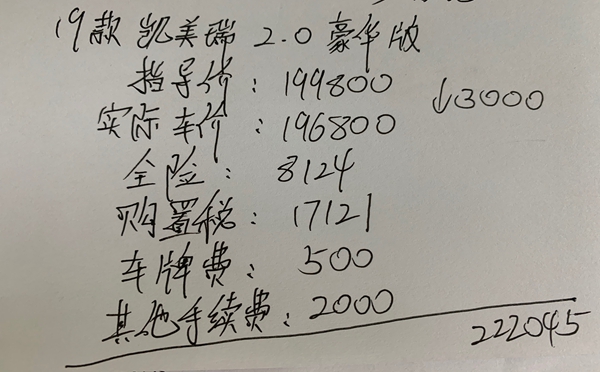 19款 凯美瑞 2.0 豪华版
指导价：199800 ↓3000
实际车价：196800
全险：8124
购置税：17121
车牌费：500
其他手续费：2000
222045